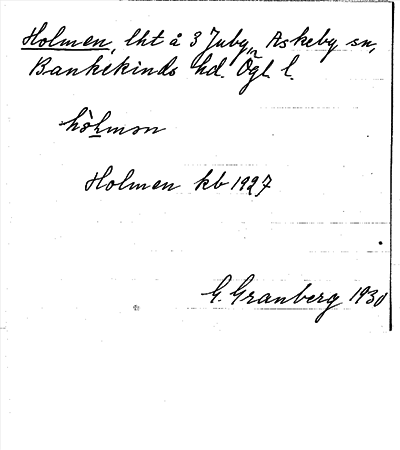 Holmen, lht å 3 Juby, Askeby sn,
Bankekinds hd. Ögl l.
Holmen kb 1927
G. Granberg 1930